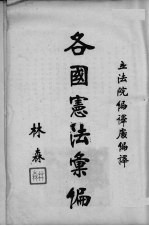 立法院編譯處編譯
各國憲法彙編
林森